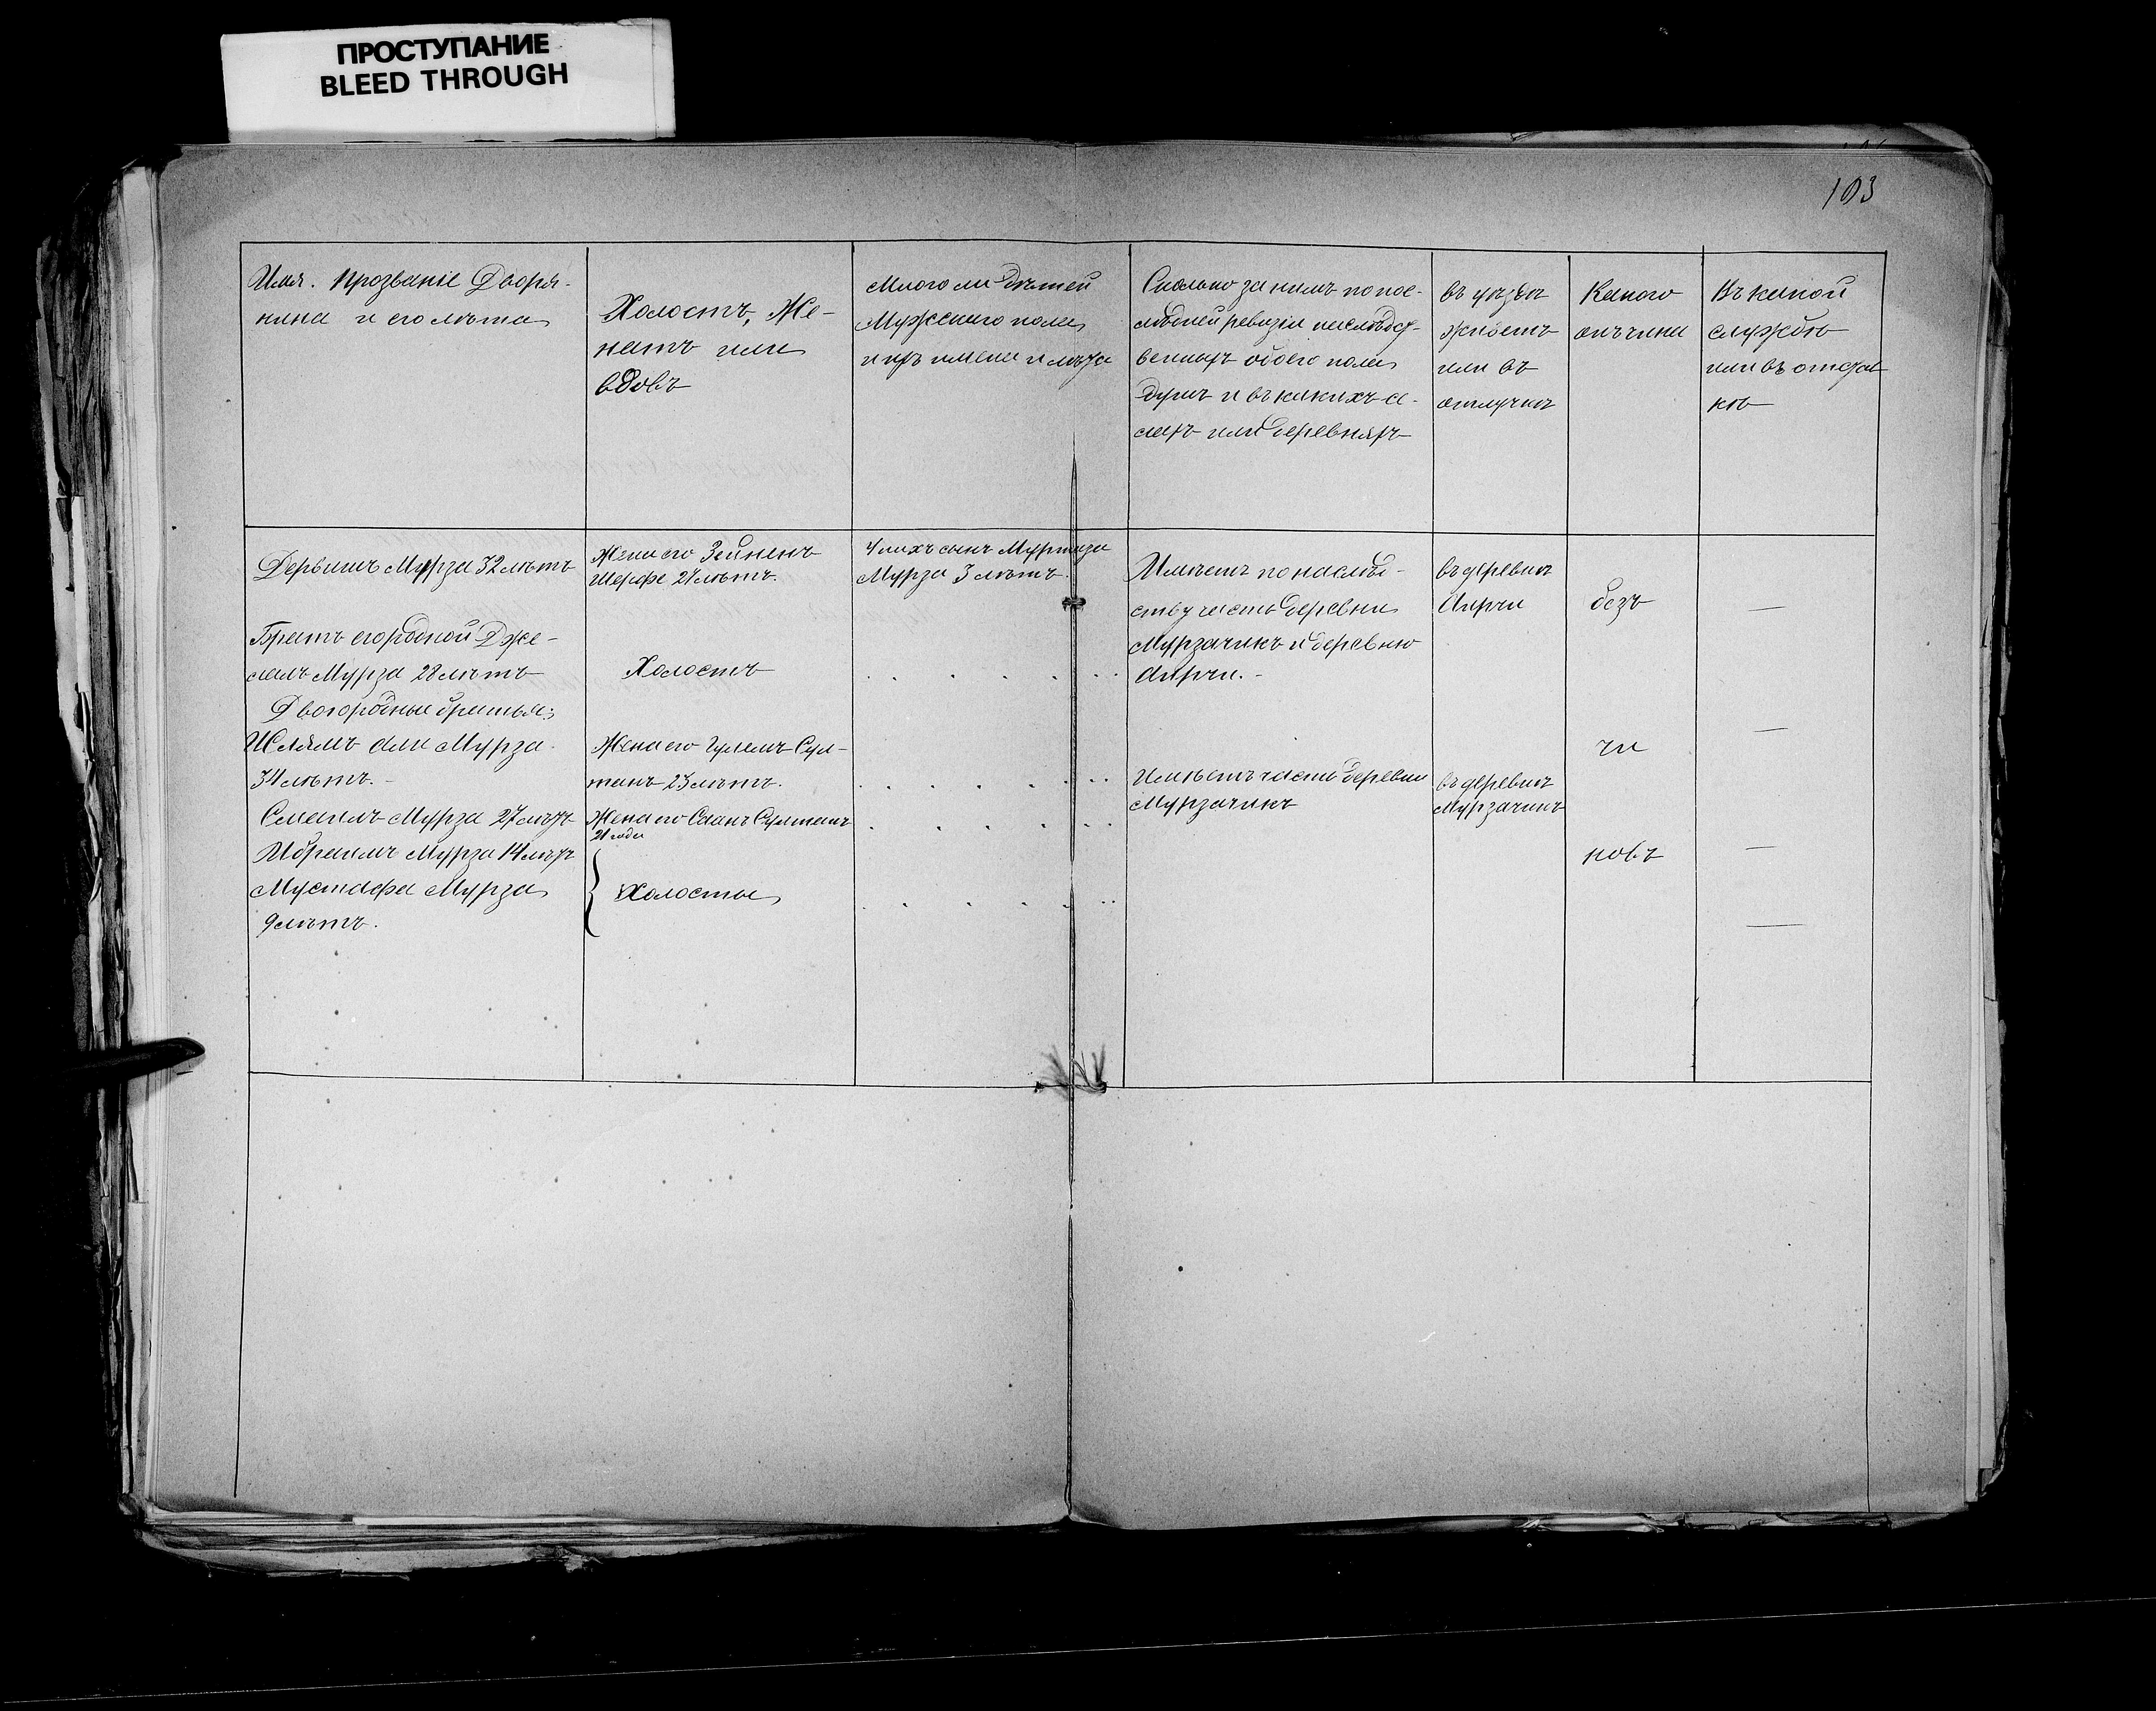 ПРОСТУПАНИЕ
BLEED THROUGH
103
Имя. Прозваніе Дворя-
нина и его лѣта
Холостъ, Же-
натъ или
вдовъ
Много ли дѣтей
Мужескаго пола
и ихъ имена и лѣта
Сколько за нимъ по пос-
лѣдней ревизіи наслѣдст-
венныхъ обоего пола
душъ и въ какихъ се-
лахъ или деревняхъ
въ уѣздѣ
живетъ
или въ
отлучкѣ
Какого
онъ чина
Въ какой
службѣ
или въ отстав
кѣ
Дервишъ Мурза 32 лѣтъ
Жена его Зейненъ
Шерфе 24 лѣтъ.
У нихъ сынъ Муртаза
Мурза 3 лѣтъ.
Имѣетъ по наслѣд-
ству часть деревни
Мурзачикъ и деревню
Аирчи.-
въ деревнѣ
Аирчи
безъ
Братъ его родной Дже-
малъ Мурза 28 лѣтъ
Холостъ
Двоюродные братья:
Ислямъ али Мурза
34 лѣтъ.-
Жена его Гулемъ Сул-
танъ 23 лѣтъ.
Имѣетъ часть деревни
Мурзачикъ
въ деревнѣ
Мурзачикъ
чи
Смаилъ Мурза 27 лѣтъ
Жена его Саанъ Султанъ
21 года
Ибраимъ Мурза 14 лѣтъ
Мустафа Мурза
9 лѣтъ.
Холосты
новъ